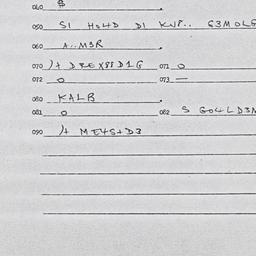 040 $
050 SI HO4D DI KUP.. G3MOLS
060 A..M3R
070 )+ DREX88D1G 071 O
072 O 073 —
080 KALB
081 O 082 S GO4LD3N
090 )+ ME4S+D3